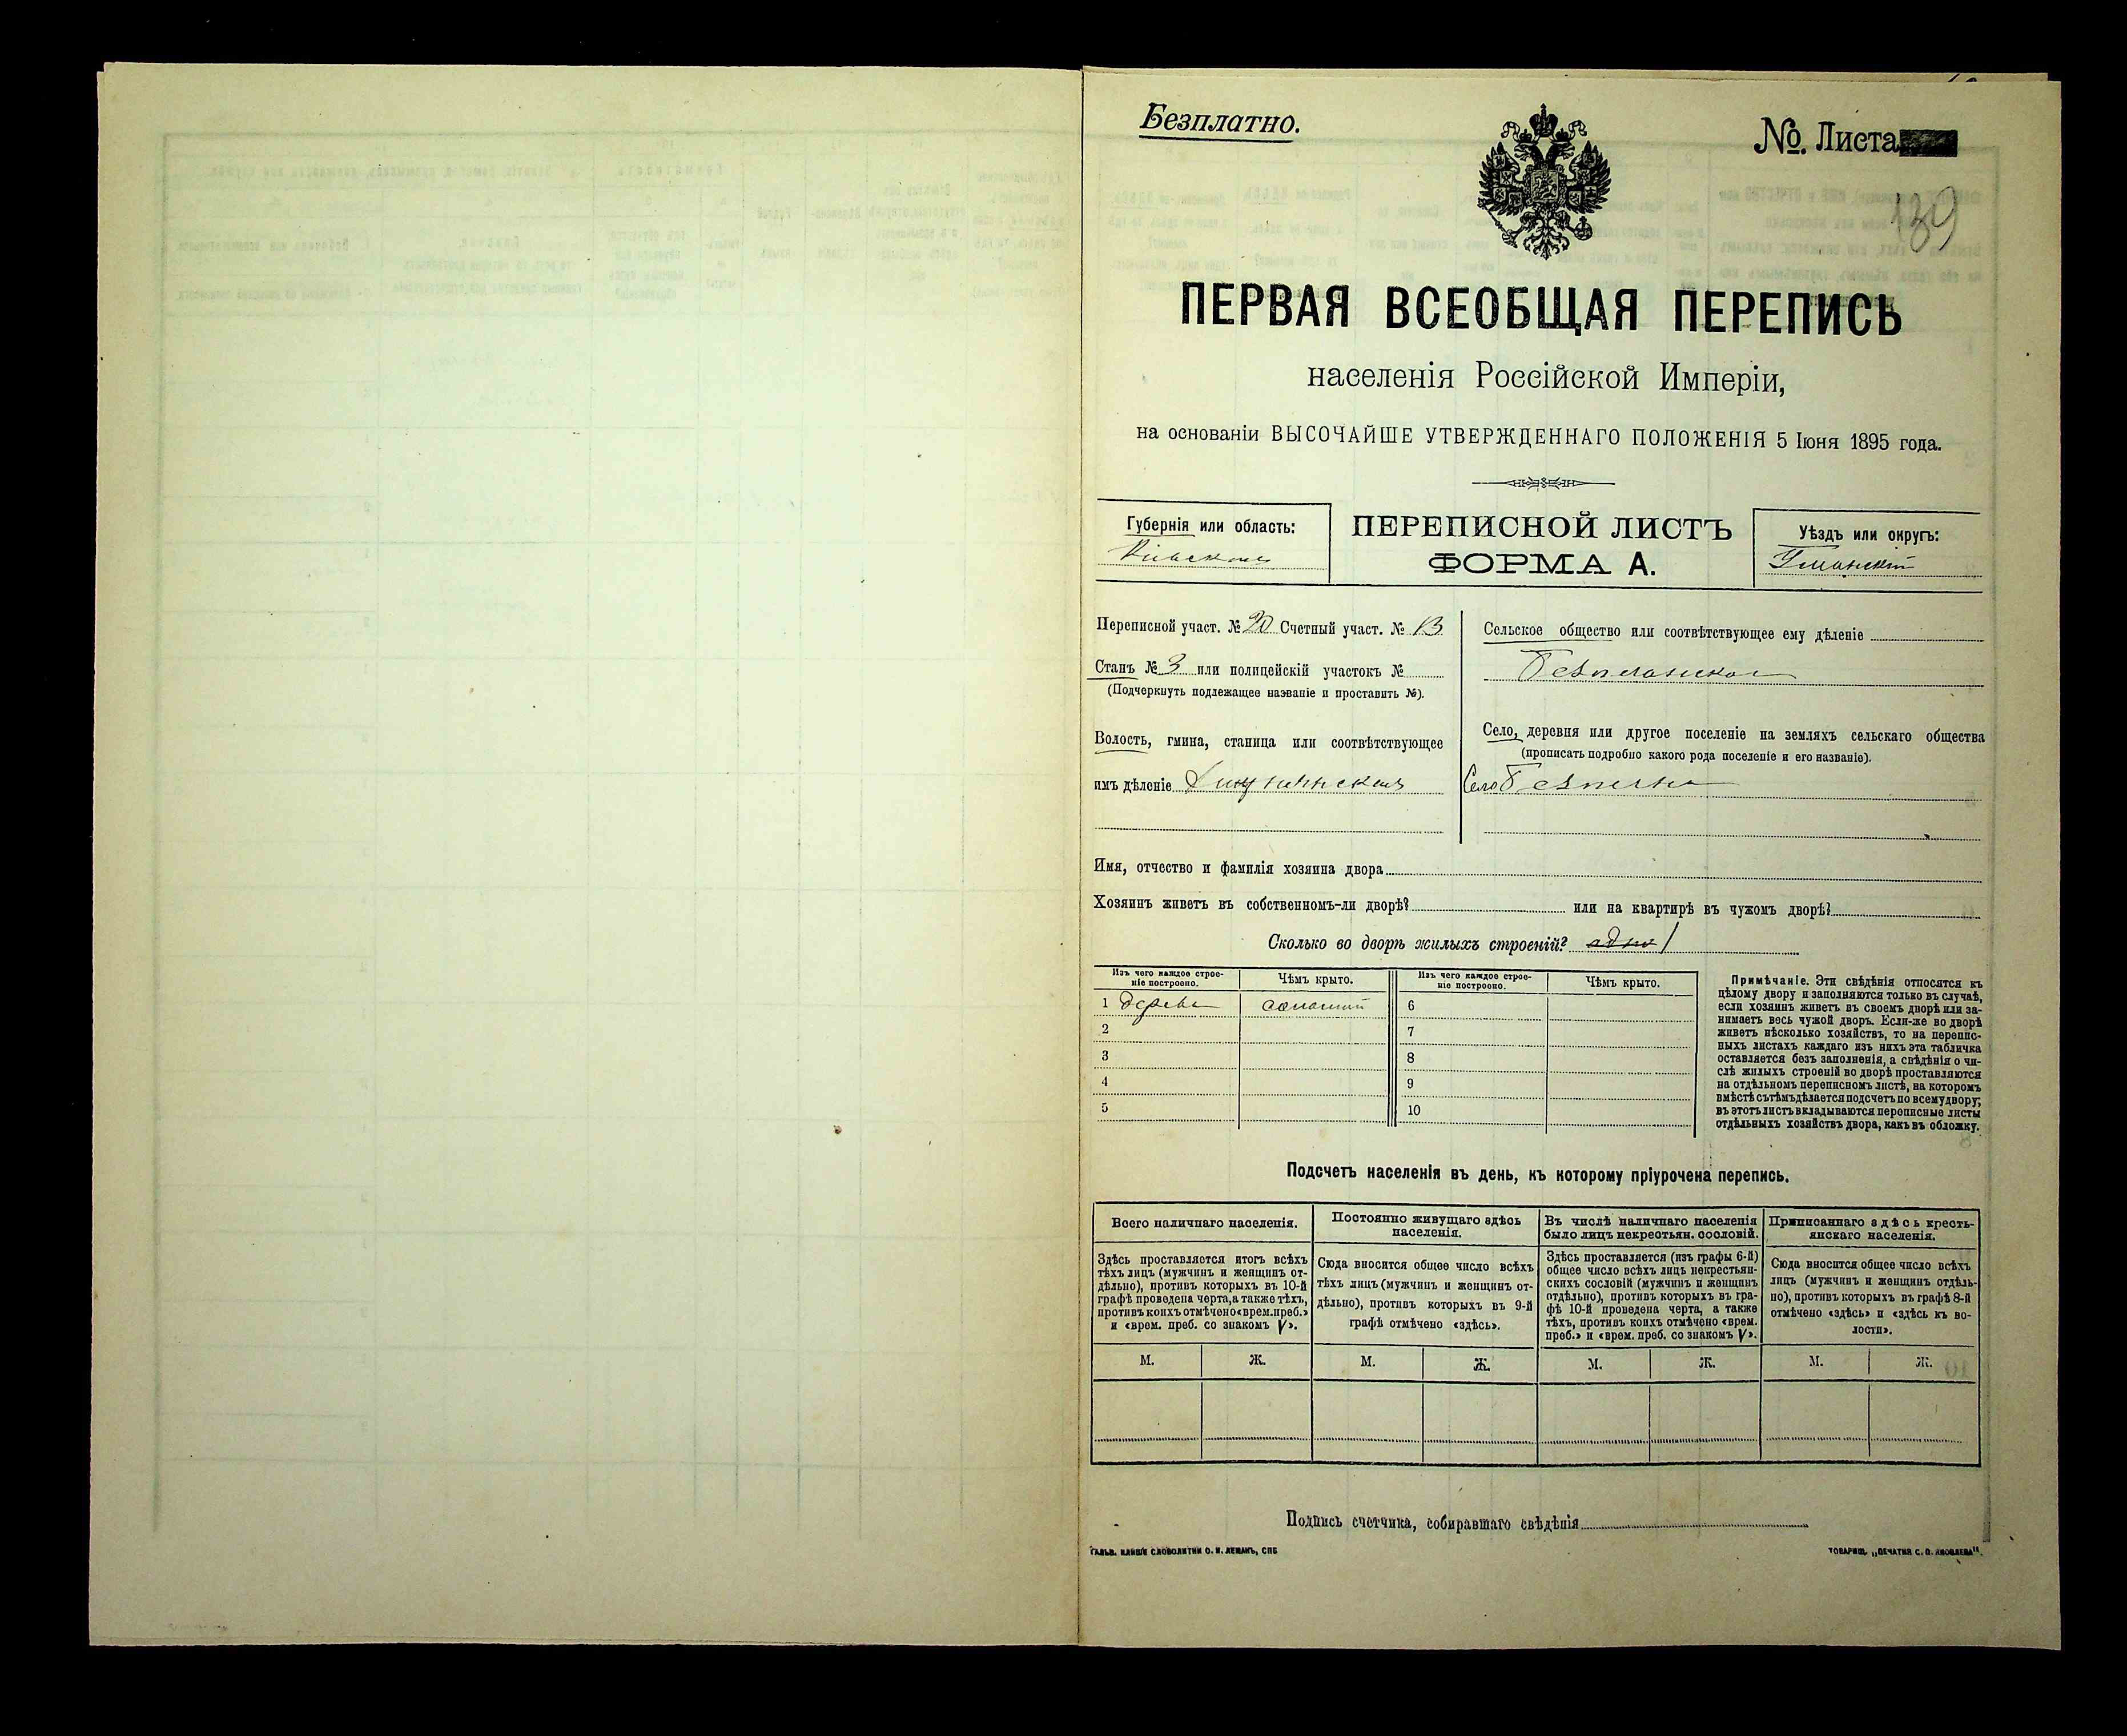 Безплатно.
№. Листа
139
ПЕРВАЯ ВСЕОБЩАЯ ПЕРЕПИСЬ
населенія Россійской Имперіи,
на основаніи ВЫСОЧАЙШЕ УТВЕРЖДЕННАГО ПОЛОЖЕНІЯ 5 Іюня 1895 года.
Губернія или область:
Кіевская
ПЕРЕПИСНОЙ ЛИСТЪ
ФОРМА А.
Уѣздъ или округъ:
Уманскій
Переписной участ. № 20 Счетный участ. № 13
Станъ № 3 или полицейскій участокъ №
(Подчеркнуть подлежащее названіе и проставить №).
Волость, гмина, станица или соотвѣтствующее
имъ дѣленіе
Сельское общество или соотвѣтствующее ему дѣленіе
Село, деревня или другое поселеніе на земляхъ сельскаго общества
(прописать подробно какого рода поселеніе и его названіе).
Село
Имя, отчество и фамилія хозяина двора
Хозяинъ живетъ въ собственномъ-ли дворѣ? или на квартирѣ въ чужомъ дворѣ?
Сколько во дворѣ жилыхъ строеній? одно 1
Изъ чего каждое строе-
ніе построено.
Чѣмъ крыто.
Изъ чего каждое строе-
ніе построено.
Чѣмъ крыто.
1 дерева соломой 6
2 7
3 8
4 9
5 10
Примѣчаніе. Эти свѣдѣнія относятся къ
цѣлому двору и заполняются только въ случаѣ,
если хозяинъ живетъ въ своемъ дворѣ или за-
нимаетъ весь чужой дворъ. Если-же во дворѣ
живетъ нѣсколько хозяйствъ, то на перепис-
ныхъ листахъ каждаго изъ нихъ эта табличка
оставляется безъ заполненія, а свѣдѣнія о чи-
слѣ жилыхъ строеній во дворѣ проставляются
на отдѣльномъ переписномъ листѣ, на которомъ
вмѣстѣ съ тѣмъ дѣлается подсчетъ по всему двору;
въ этотъ листъ вкладываются переписные листы
отдѣльныхъ хозяйствъ двора, какъ въ обложку.
Подсчетъ населенія въ день, къ которому пріурочена перепись.
Всего наличнаго населенія.
Здѣсь проставляется итогъ всѣхъ
тѣхъ лицъ (мужчинъ и женщинъ от-
дѣльно), противъ которыхъ въ 10-й
графѣ проведена черта, а также тѣхъ,
противъ коихъ отмѣчено «врем. преб.»
и «врем. преб. со знакомъ V».
М. Ж.
Постоянно живущаго здѣсь
населенія.
Сюда вносится общее число всѣхъ
тѣхъ лицъ (мужчинъ и женщинъ от-
дѣльно), противъ которыхъ въ 9-й
графѣ отмѣчено «здѣсь».
М. Ж.
Въ числѣ наличнаго населенія
было лицъ некрестьян. сословій.
Здѣсь проставляется (изъ графы 6-й)
общее число всѣхъ лицъ некрестьян-
скихъ сословій (мужчинъ и женщинъ
отдѣльно), противъ которыхъ въ гра-
фѣ 10-й проведена черта, а также
тѣхъ, противъ коихъ отмѣчено «врем.
преб.» и «врем. преб. со знакомъ V».
М. Ж.
Приписаннаго здѣсь кресть-
янскаго населенія.
Сюда вносится общее число всѣхъ
лицъ (мужчинъ и женщинъ отдѣль-
но), противъ которыхъ въ графѣ 8-й
отмѣчено «здѣсь» и «здѣсь къ во-
лости».
М. Ж.
Подпись счетчика, собиравшаго свѣдѣнія
ГАЛЬВ. КЛИШЕ СЛОВОЛИТНИ О. И. ЛЕМАНЪ, СПБ
ТОВАРИЩ. „ПЕЧАТНЯ С. П. ЯКОВЛЕВА".